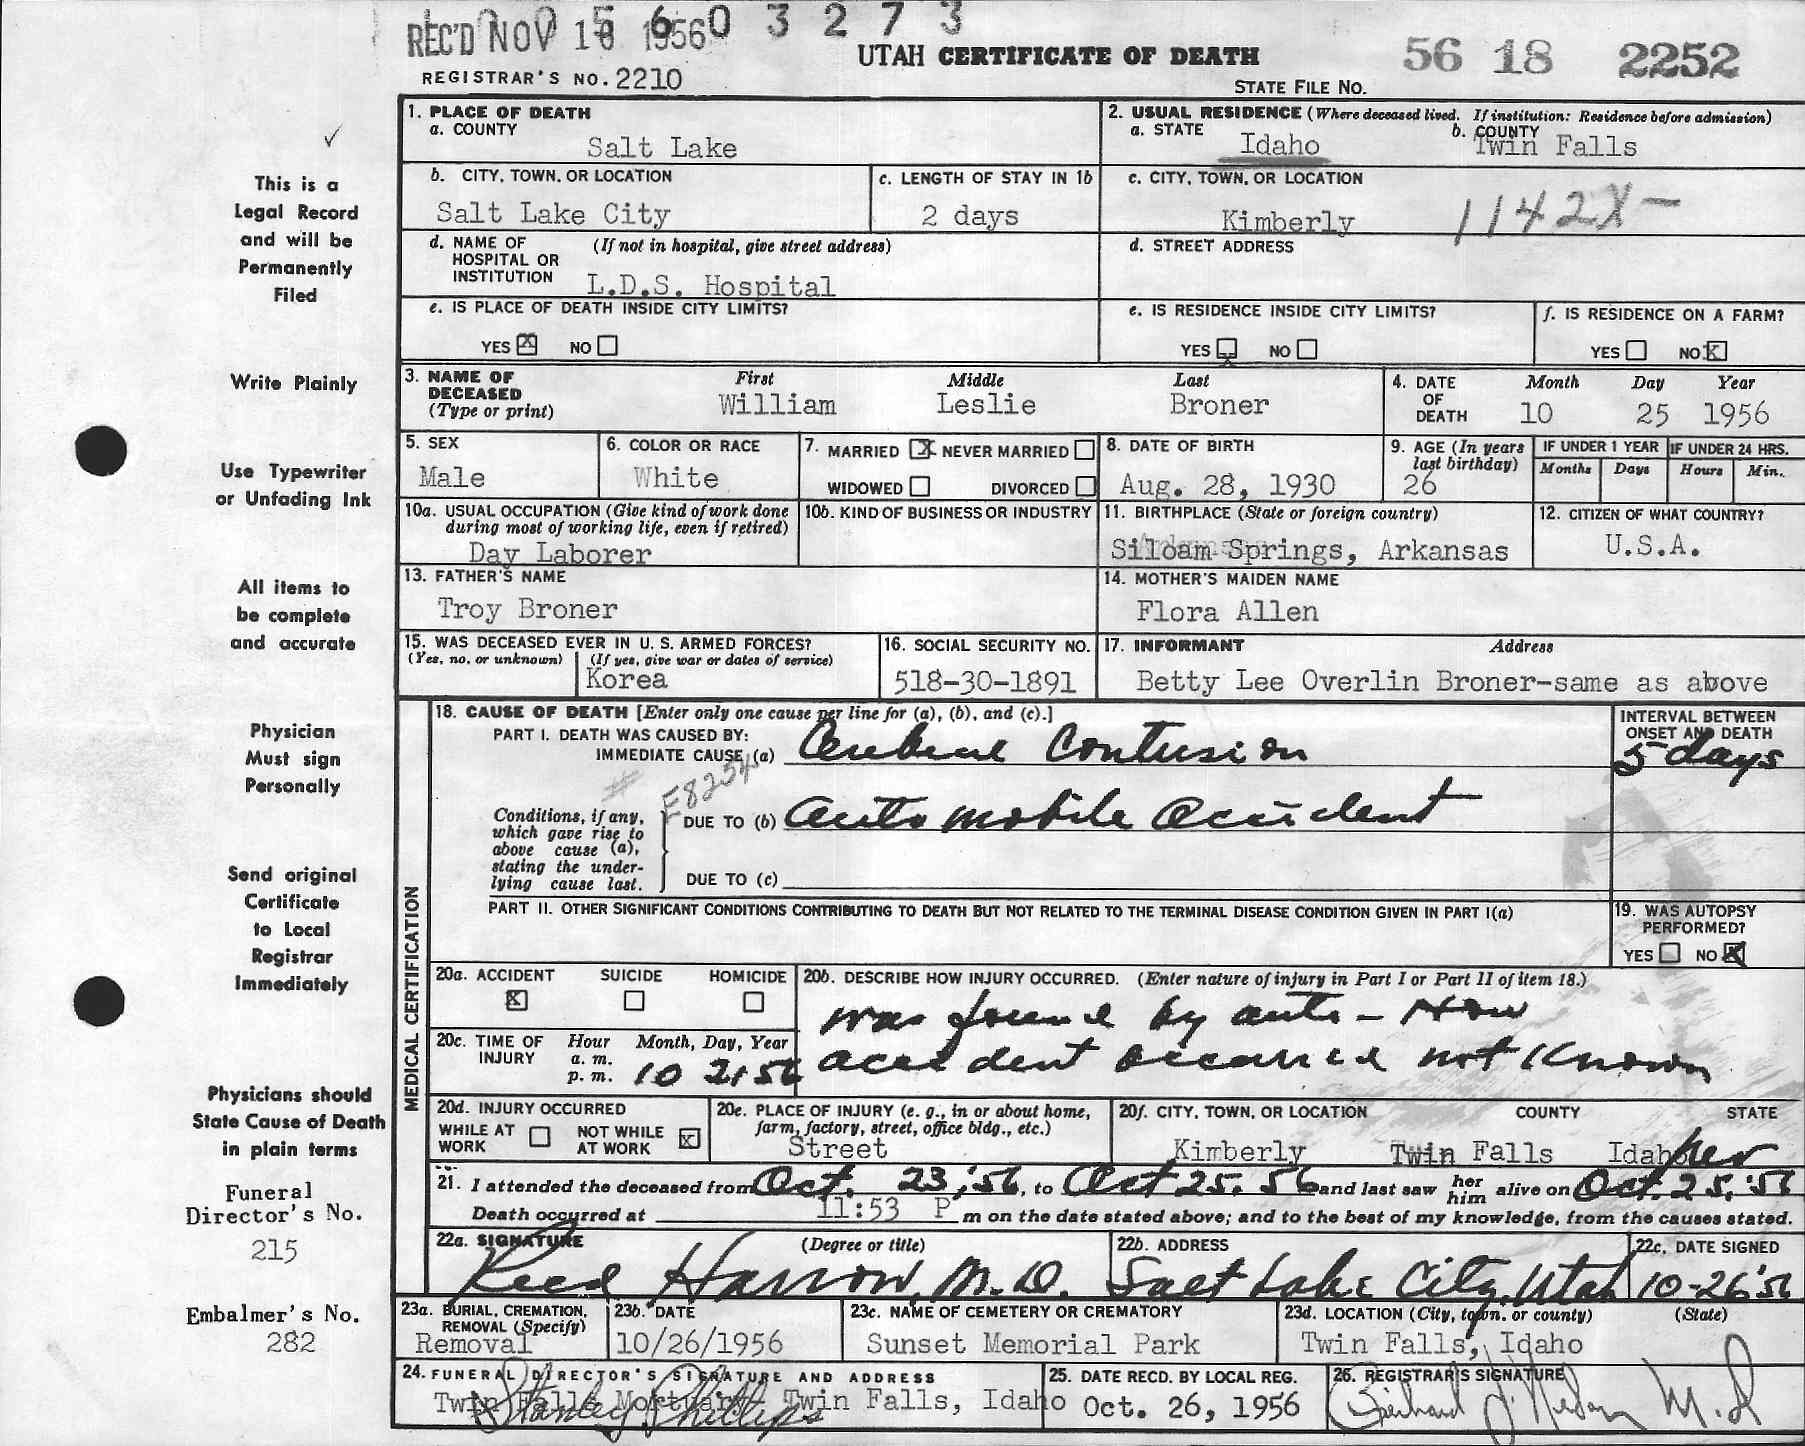 REC'D NOV 1956 0 3 2 7 3
UTAH CERTIFICATE OF DEATH
56 18 2252
REGISTRAR'S NO. 2210
STATE FILE NO.
This is a
Legal Record
and will be
Permanently
Filed
Write Plainly
Use Typewriter
or Unfading Ink
All items to
be complete
and accurate
Physician
Must sign
Personally
Send original
Certificate
to Local
Registrar
Immediately
Physicians should
State Cause of Death
in plain terms
Funeral
Director's No.
215
Embalmer's No.
282
1. PLACE OF DEATH
a. COUNTY
Salt Lake
2. USUAL RESIDENCE (Where deceased lived. If institution: Residence before admission)
a. STATE Idaho b. COUNTY Twin Falls
b. CITY, TOWN, OR LOCATION
Salt Lake City
c. LENGTH OF STAY IN 1b
2 days
c. CITY, TOWN, OR LOCATION
Kimberly 1142X-
d. NAME OF HOSPITAL OR INSTITUTION (If not in hospital, give street address)
L.D.S. Hospital
d. STREET ADDRESS
e. IS PLACE OF DEATH INSIDE CITY LIMITS?
YES X NO
e. IS RESIDENCE INSIDE CITY LIMITS?
YES X NO
f. IS RESIDENCE ON A FARM?
YES NO X
3. NAME OF DECEASED (Type or print)
First Middle Last
William Leslie Broner
4. DATE OF DEATH
Month Day Year
10 25 1956
5. SEX
Male
6. COLOR OR RACE
White
7. MARRIED X NEVER MARRIED
WIDOWED DIVORCED
8. DATE OF BIRTH
Aug. 28, 1930
9. AGE (In years last birthday)
26
IF UNDER 1 YEAR IF UNDER 24 HRS.
Months Days Hours Min.
10a. USUAL OCCUPATION (Give kind of work done during most of working life, even if retired)
Day Laborer
10b. KIND OF BUSINESS OR INDUSTRY
11. BIRTHPLACE (State or foreign country)
Siloam Springs, Arkansas
12. CITIZEN OF WHAT COUNTRY?
U.S.A.
13. FATHER'S NAME
Troy Broner
14. MOTHER'S MAIDEN NAME
Flora Allen
15. WAS DECEASED EVER IN U. S. ARMED FORCES?
(Yes, no, or unknown) (If yes, give war or dates of service)
Korea
16. SOCIAL SECURITY NO.
518-30-1891
17. INFORMANT Address
Betty Lee Overlin Broner-same as above
MEDICAL CERTIFICATION
18. CAUSE OF DEATH [Enter only one cause per line for (a), (b), and (c).]
PART I. DEATH WAS CAUSED BY:
IMMEDIATE CAUSE (a) Cerebral Contusion
INTERVAL BETWEEN ONSET AND DEATH
5 days
# E8254
Conditions, if any, which gave rise to above cause (a), stating the underlying cause last.
DUE TO (b) Automobile Accident
DUE TO (c)
PART II. OTHER SIGNIFICANT CONDITIONS CONTRIBUTING TO DEATH BUT NOT RELATED TO THE TERMINAL DISEASE CONDITION GIVEN IN PART I(a)
19. WAS AUTOPSY PERFORMED?
YES NO X
20a. ACCIDENT SUICIDE HOMICIDE
X
20b. DESCRIBE HOW INJURY OCCURRED. (Enter nature of injury in Part I or Part II of item 18.)
was found by auto - How
accident occurred not known
20c. TIME OF INJURY Hour Month, Day, Year
a. m.
p. m. 10 21 56
20d. INJURY OCCURRED
WHILE AT WORK NOT WHILE AT WORK X
20e. PLACE OF INJURY (e. g., in or about home, farm, factory, street, office bldg., etc.)
Street
20f. CITY, TOWN, OR LOCATION COUNTY STATE
Kimberly Twin Falls Idaho
21. I attended the deceased from Oct. 23, '56, to Oct 25, 56 and last saw her him alive on Oct. 25, '56
Death occurred at 11:53 P m on the date stated above; and to the best of my knowledge, from the causes stated.
22a. SIGNATURE (Degree or title)
Reed Harrow, M.D.
22b. ADDRESS
Salt Lake City, Utah
22c. DATE SIGNED
10-26 '56
23a. BURIAL, CREMATION, REMOVAL (Specify)
Removal
23b. DATE
10/26/1956
23c. NAME OF CEMETERY OR CREMATORY
Sunset Memorial Park
23d. LOCATION (City, town, or county) (State)
Twin Falls, Idaho
24. FUNERAL DIRECTOR'S SIGNATURE AND ADDRESS
Twin Falls Mortuary Twin Falls, Idaho
Stanley Phillips
25. DATE RECD. BY LOCAL REG.
Oct. 26, 1956
26. REGISTRAR'S SIGNATURE
M.D